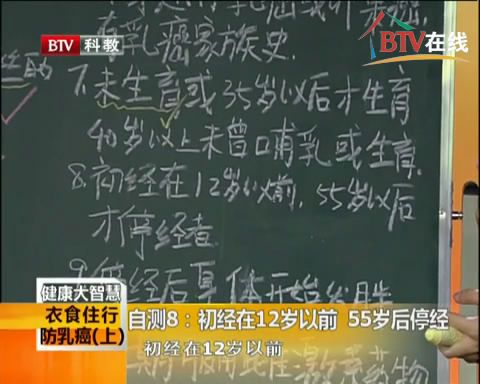 BTV 科教
BTV在线
有乳癌家族史.
7.未生育或35岁以后才生育
40岁以上未曾哺乳或生育.
8.初经在12岁以前,55岁以后
才停经者
健康大智慧
衣食住行
防乳癌(上)
自测8：初经在12岁以前 55岁后停经
初经在12岁以前